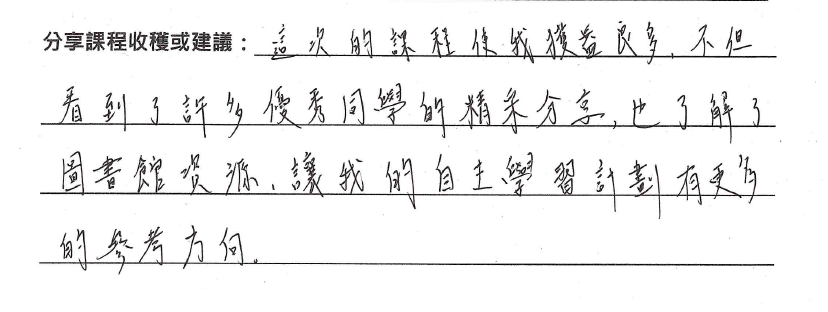 分享課程收穫或建議：這次的課程使我獲益良多，不但
看到了許多優秀同學的精采分享，也了解了
圖書館資源，讓我的自主學習計劃有更多
的參考方向。